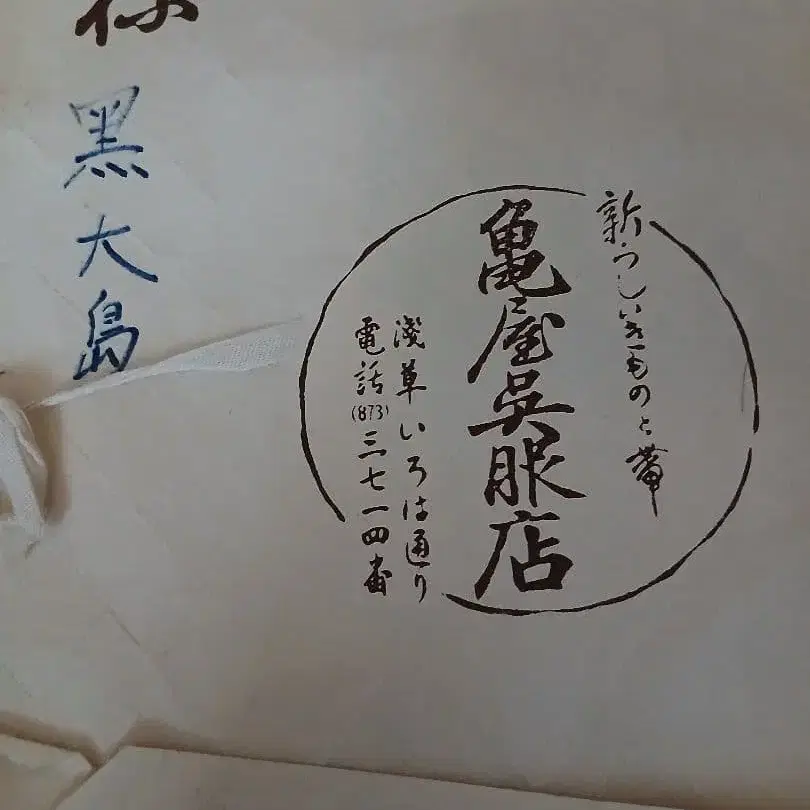 新らしいきものと帯
亀屋吳服店
淺草いろは通り
電話(873)三七一四番
様
黒大島